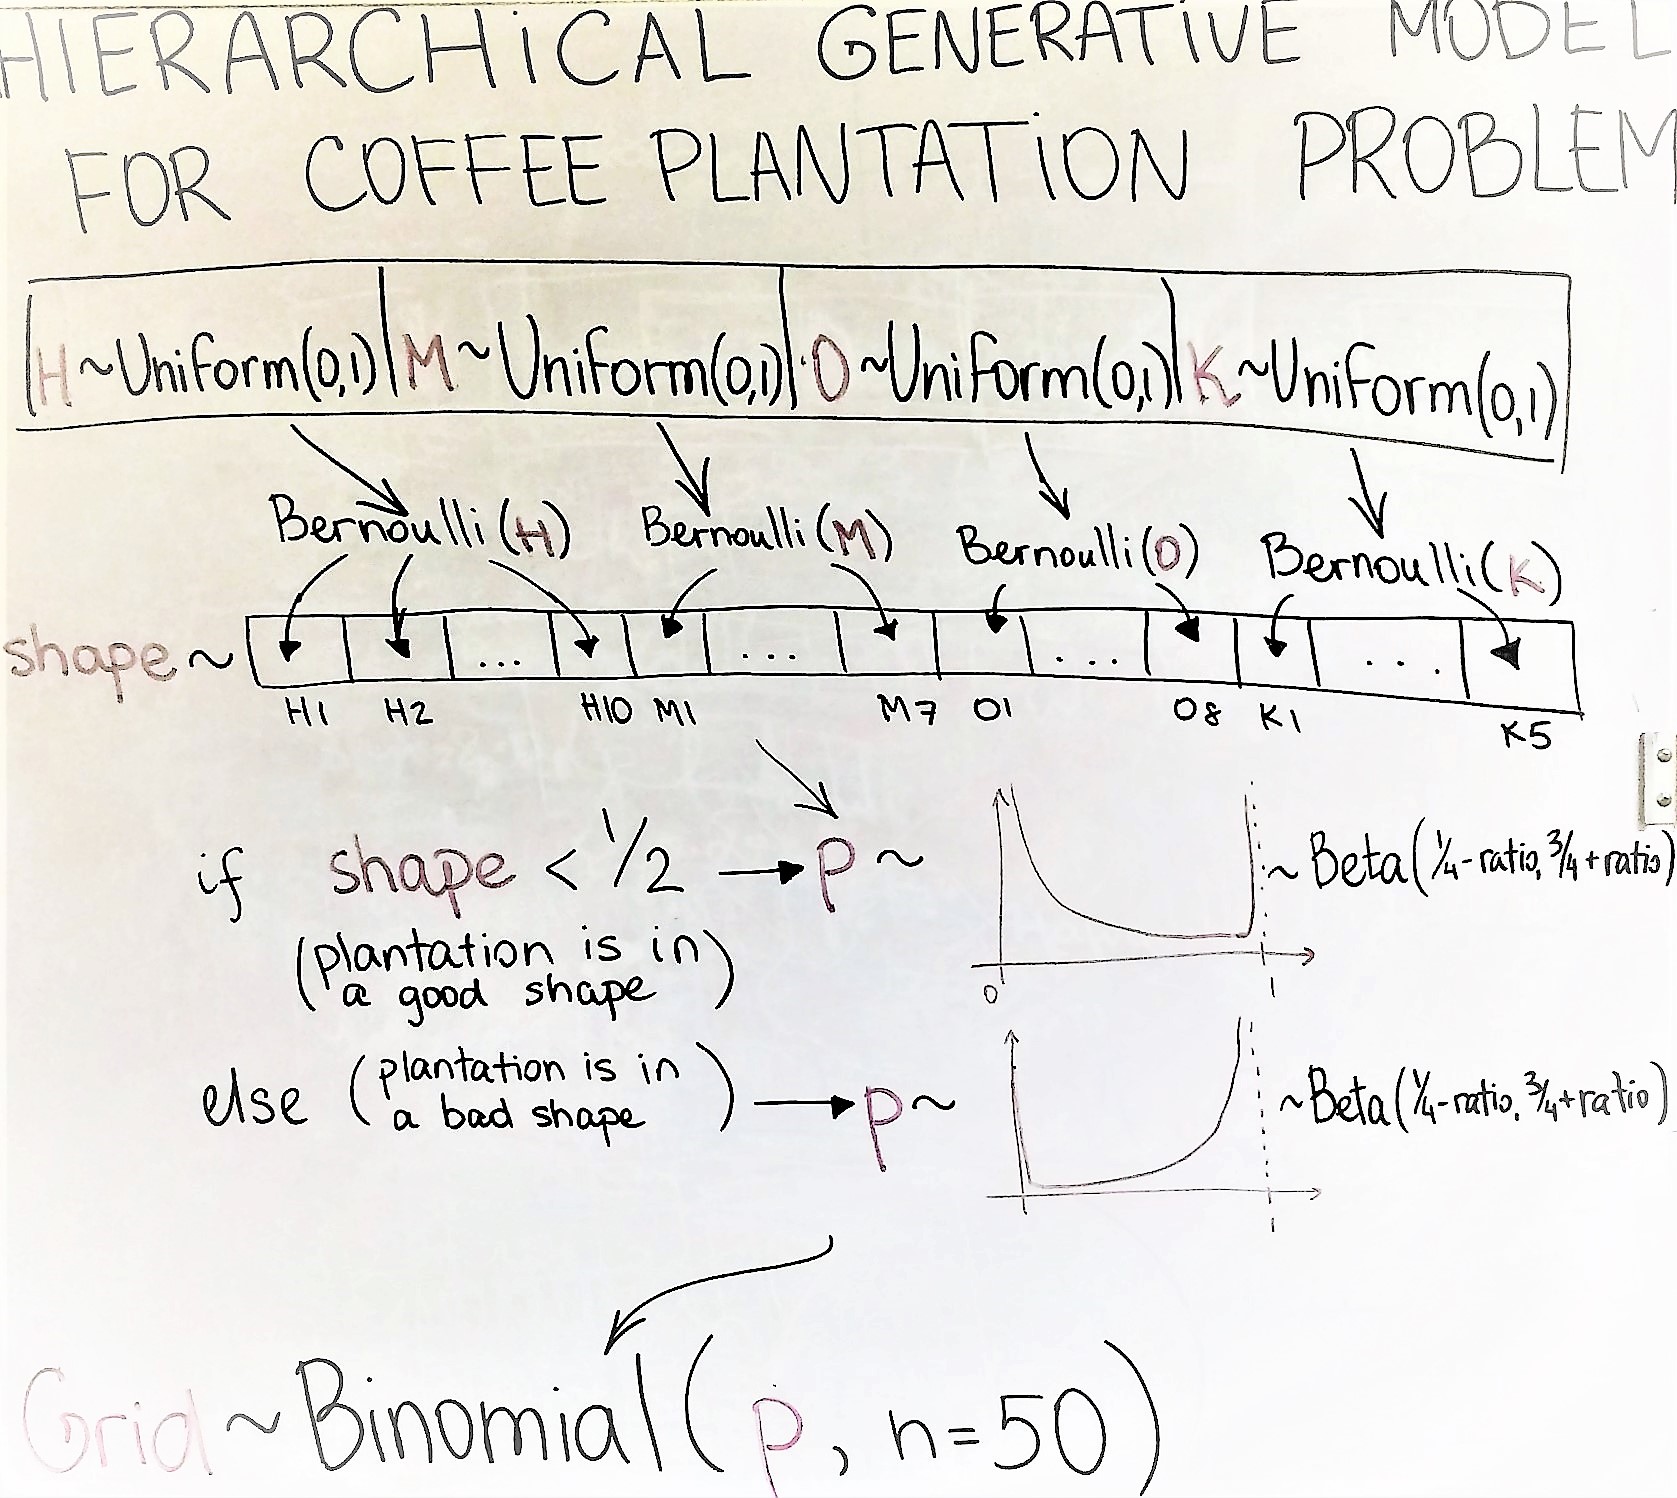 HIERARCHiCAL GENERATiVE MODEL
FOR COFFEE PLANTATiON PROBLEM
H ~ Uniform(0,1) M ~ Uniform(0,1) O ~ Uniform(0,1) K ~ Uniform(0,1)
Bernoulli(H) Bernoulli(M) Bernoulli(O) Bernoulli(K)
shape ~ ... ... ... ...
H1 H2 H10 M1 M7 O1 O8 K1 K5
if shape < 1/2 → p ~ ~ Beta(1/4-ratio, 3/4+ratio)
(plantation is in
a good shape)
0 1
else (plantation is in
a bad shape) → p ~ ~ Beta(1/4-ratio, 3/4+ratio)
1
Grid ~ Binomial(p, n=50)